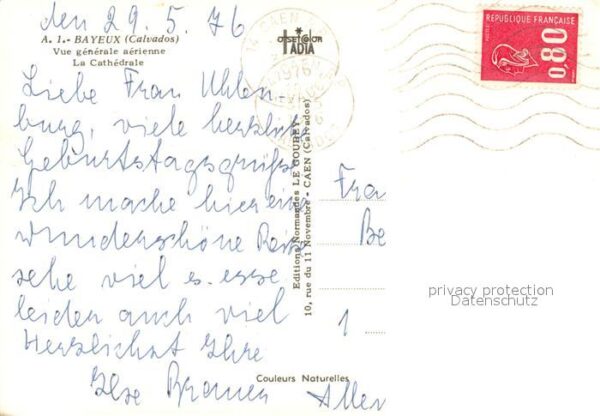 den 29. 5. 76
A. 1.- BAYEUX (Calvados)
Vue générale aérienne
La Cathédrale
Liebe Frau Uhlen-
burg, viele herzlich
Geburtstagsgrüße
Ich mache hier eine
wunderschöne Reise
sehe viel u. esse
leider auch viel
Herzlichst Ihre
Ilse
offset color
IADIA
CAEN
1976
Editions Normandes LE GOUBEY
10, rue du 11 Novembre - CAEN (Calvados)
Couleurs Naturelles
REPUBLIQUE FRANÇAISE
POSTES
0,80
Frau
Be
1
privacy protection
Datenschutz